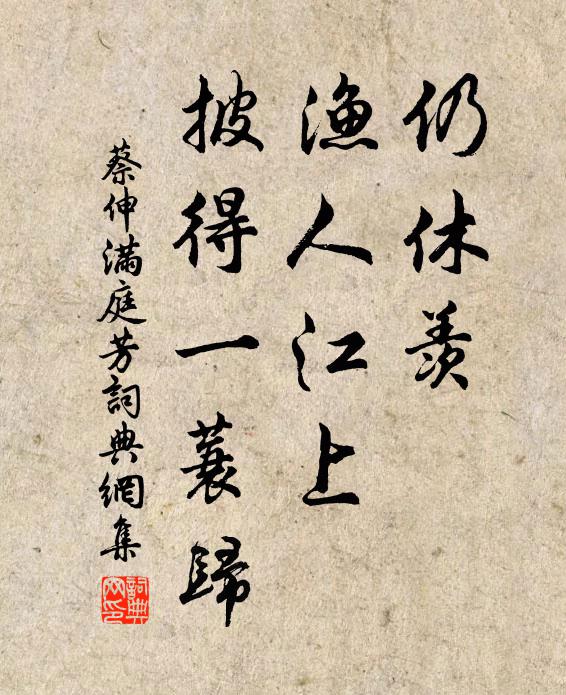 仍休羨
漁人江上
披得一蓑歸
蔡伸滿庭芳詞典網集
詞典网印